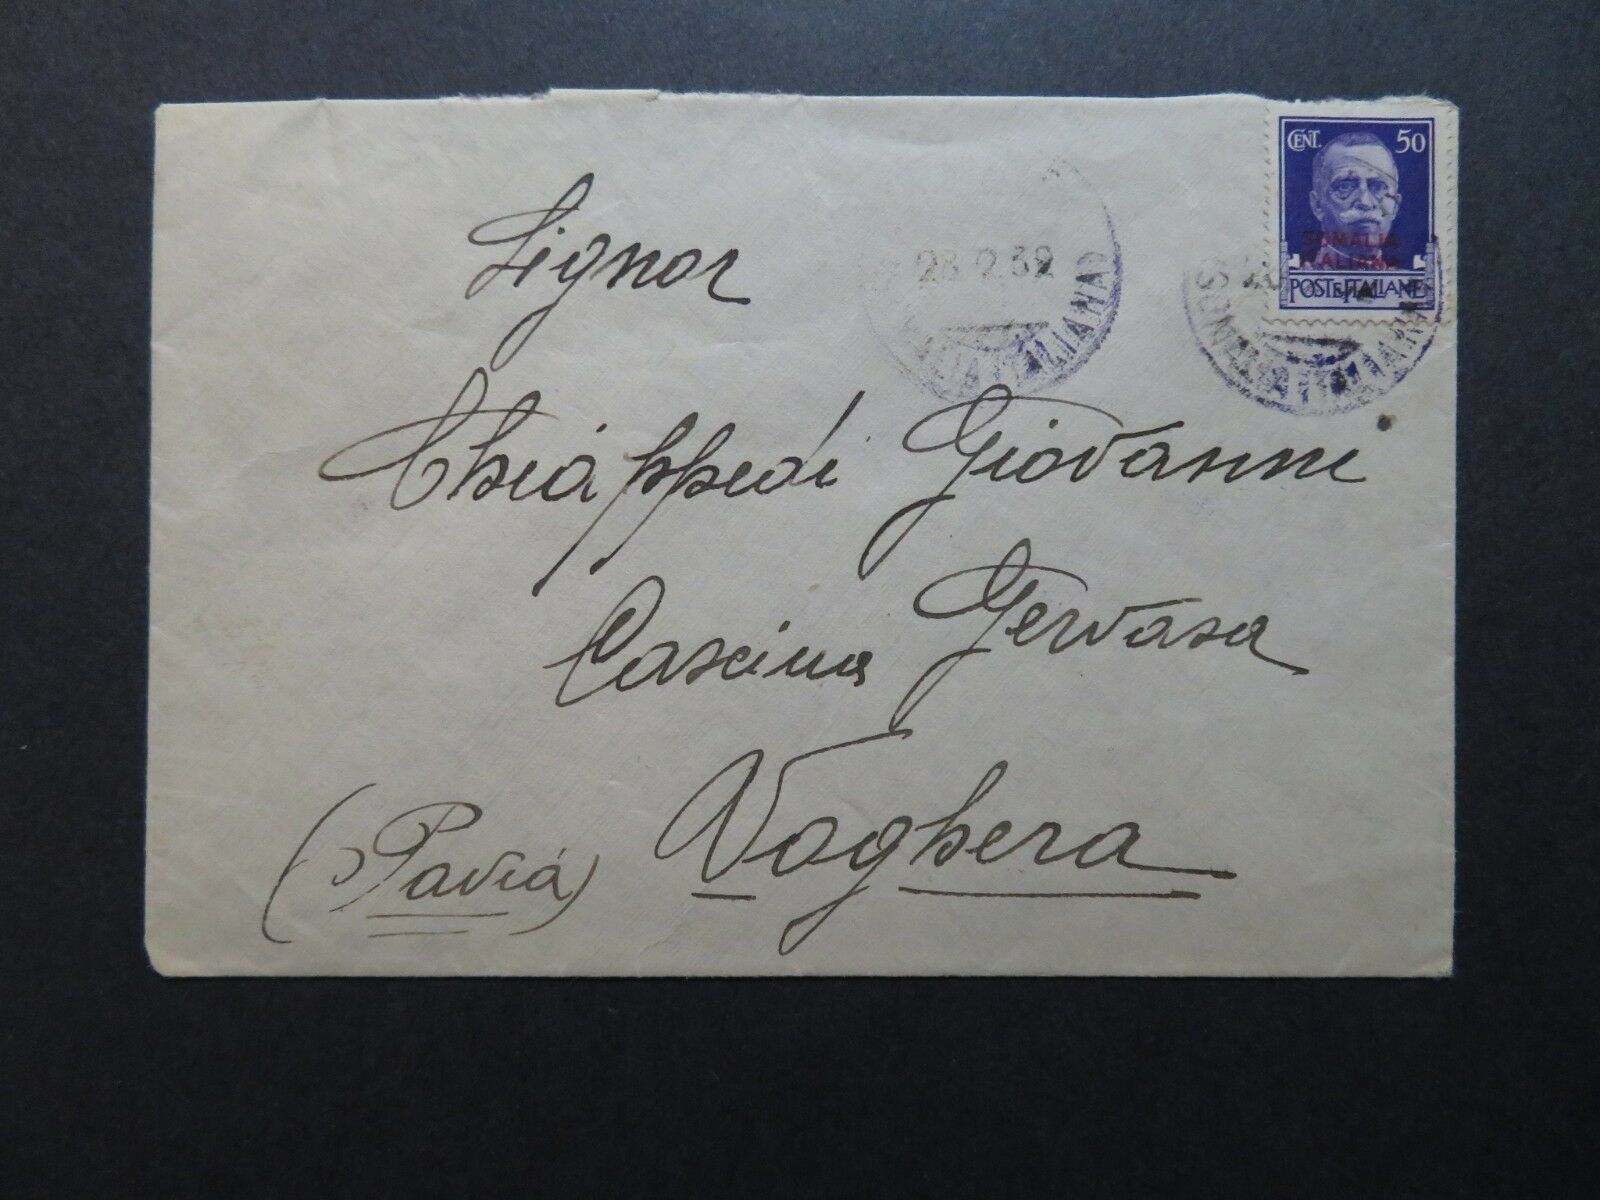 CENT. 50
SOMALIA
ITALIANA
POSTE ITALIANE
23 2 39
ITALIANA
SOMALIA ITALIANA
Signor
Chiappedi Giovanni
Cascina Gervasa
Voghera
(Pavia)